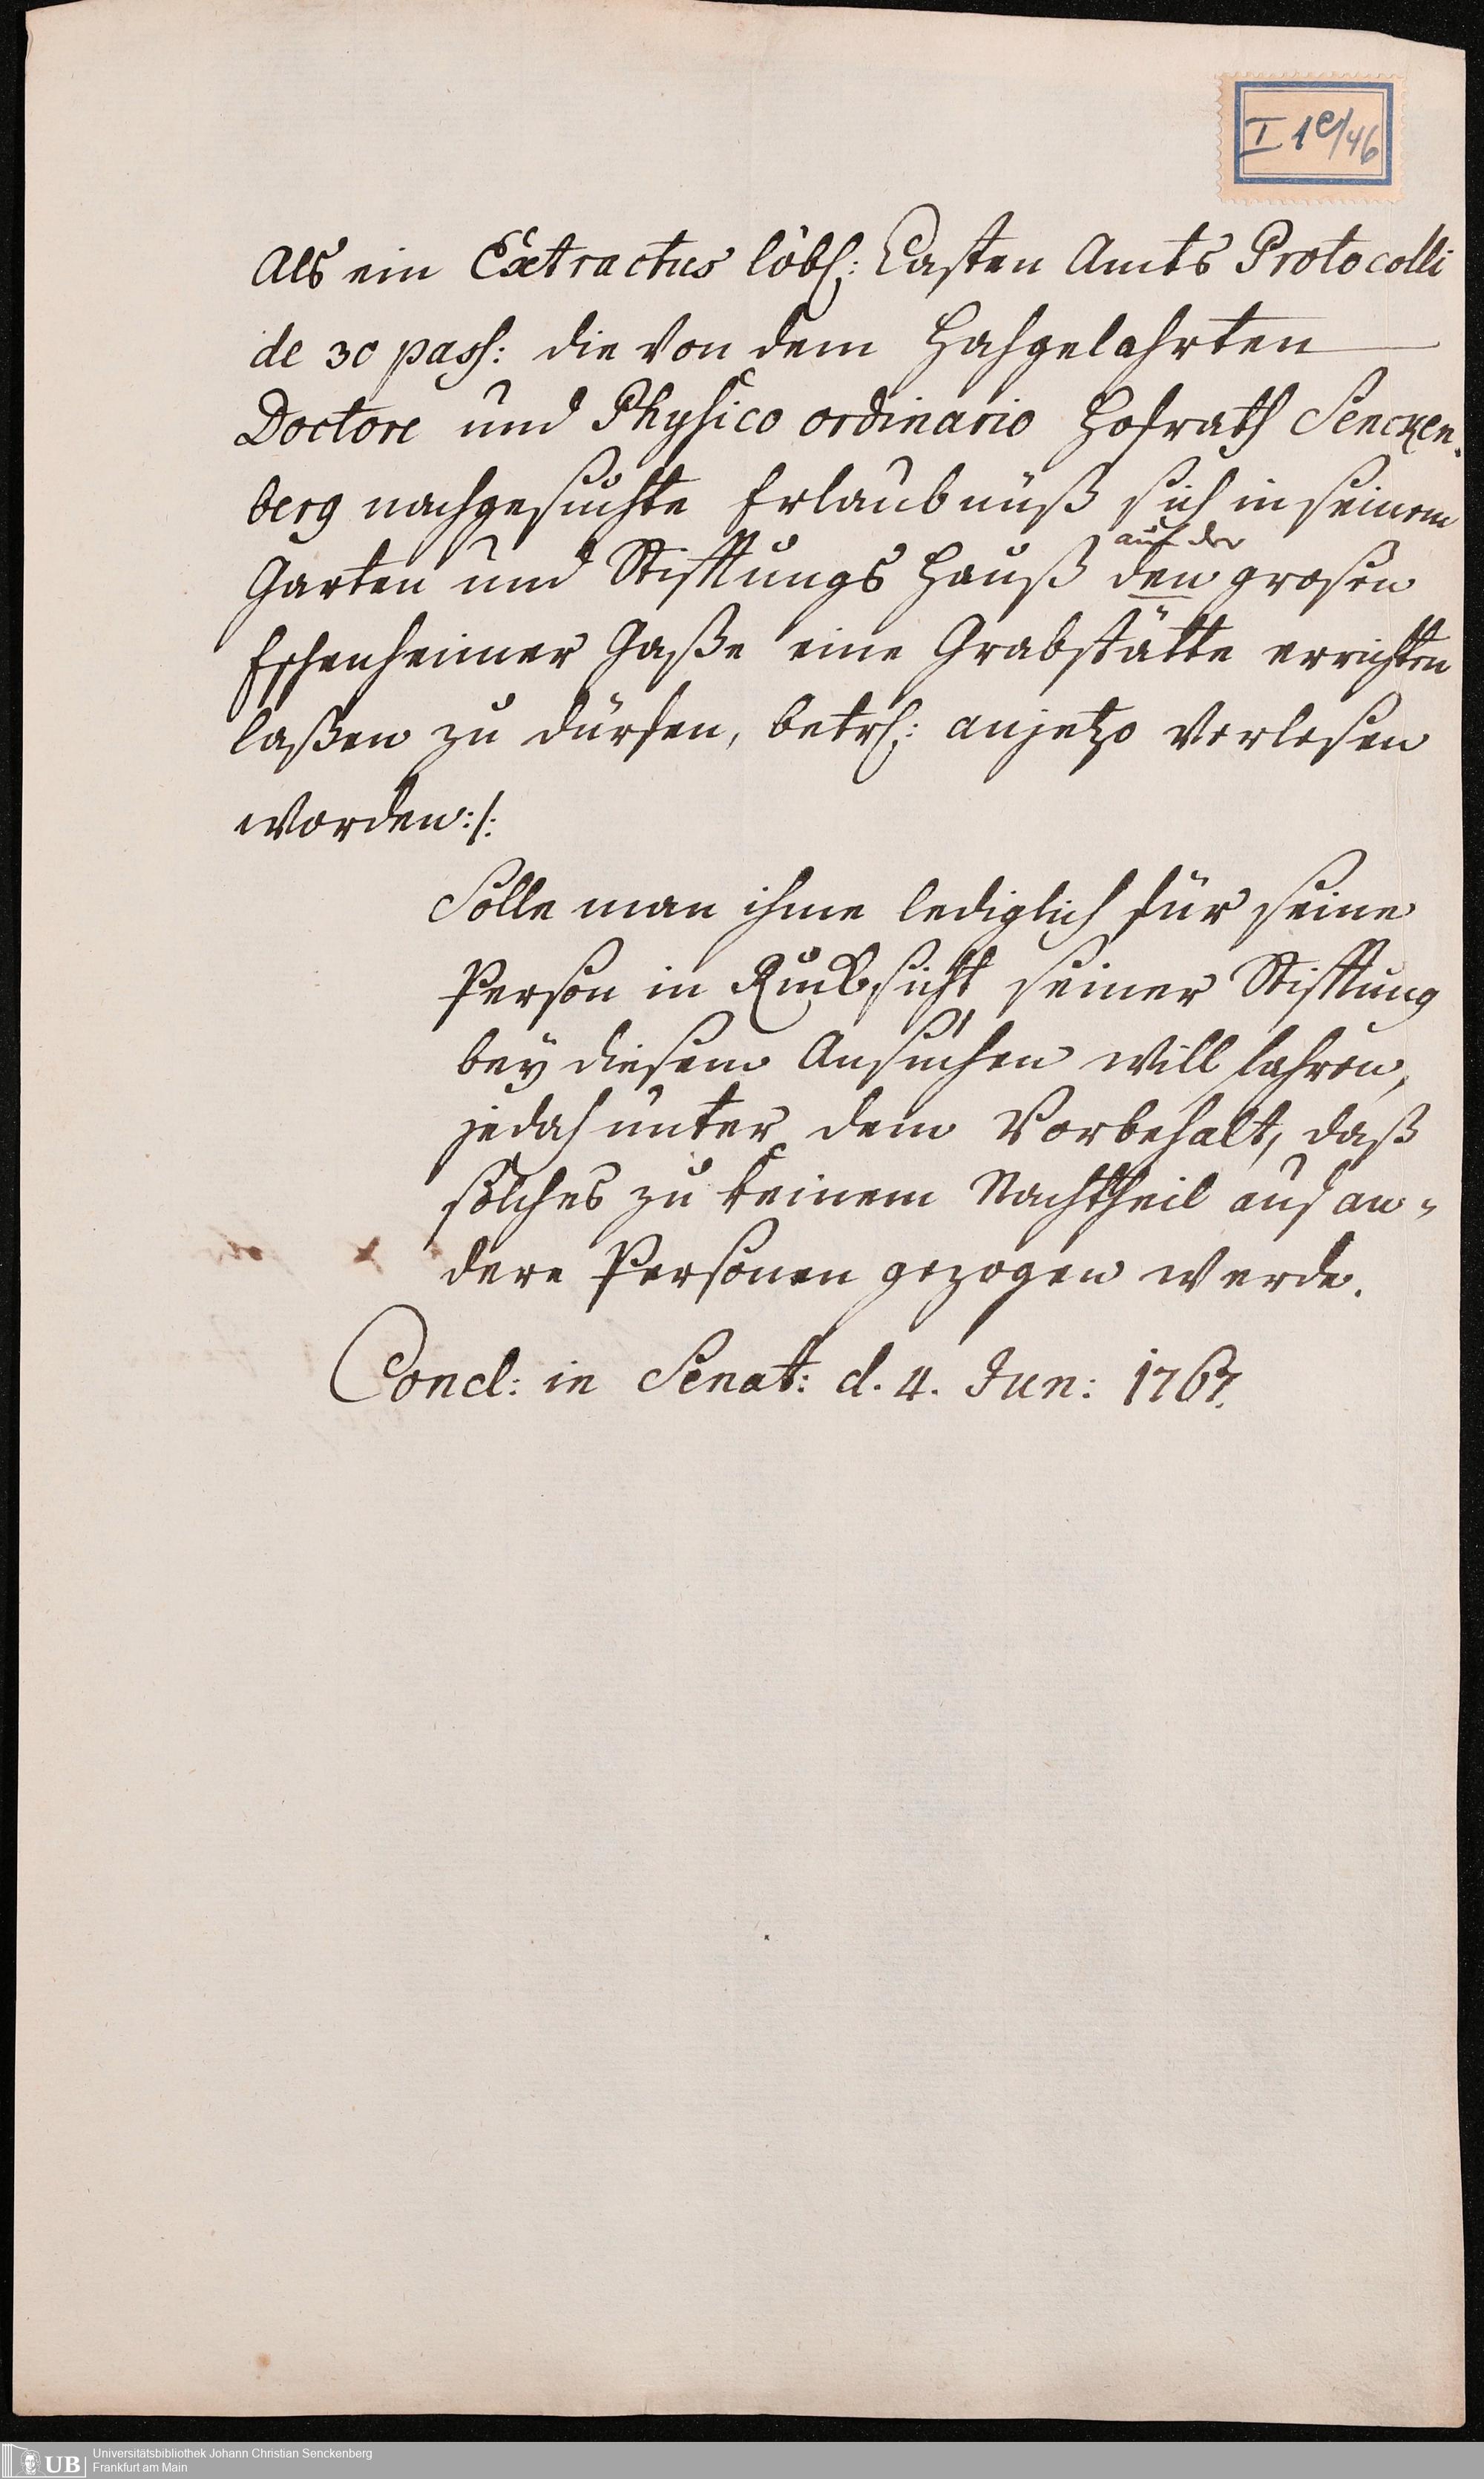 I 1e/46
Als ein Extractus löbl: Casten Amts Protocolli
de 30 pass: die von dem Hochgelahrten
Doctore und Physico ordinario Hofrath Sencken-
berg nachgesuchte Erlaubnüß sich in seinem
auf der
Garten und Stifftungs Hauß den grosen
Eschenheimer Gaße eine Grabstätte errichten
laßen zu dürfen, betrl: anjetzo verlesen
worden:/:
Solle man ihme lediglich für seine
Person in Rucksicht seiner Stifftung
bey diesem Ansuchen will fahren,
jedoch unter dem Vorbehalt, daß
solches zu keinem Nachtheil auf an-
dere Personen gezogen werde.
Concl: in Senat: d. 4. Jun: 1767.
UB
Universitätsbibliothek Johann Christian Senckenberg
Frankfurt am Main